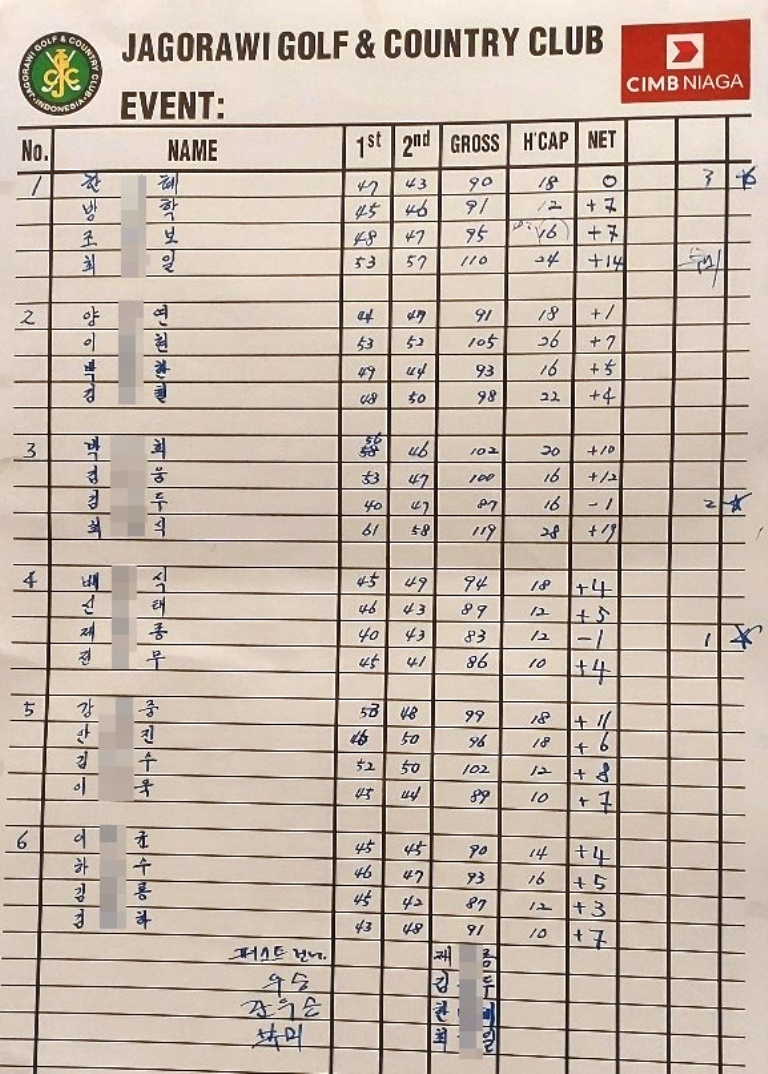 JAGORAWI GOLF & COUNTRY CLUB
JAGORAWI GOLF & COUNTRY CLUB
INDONESIA
CIMB NIAGA
EVENT:
No. NAME 1st 2nd GROSS H'CAP NET
1 한 혜 47 43 90 18 0 3
방 학 45 46 91 12 +7
조 보 48 47 95 16 +7
최 일 53 57 110 24 +14
2 양 연 44 47 91 18 +1
이 현 53 52 105 26 +7
박 환 49 44 93 16 +5
김 철 48 50 98 22 +4
3 박 희 56 46 102 20 +10
김 웅 53 47 100 16 +12
김 두 40 47 87 16 -1 2
최 식 61 58 119 28 +19
4 배 식 45 49 94 18 +4
신 태 46 43 89 12 +5
제 종 40 43 83 12 -1 1
권 무 45 41 86 10 +4
5 강 중 48 99 18 +11
안 진 46 50 96 18 +6
김 수 52 50 102 12 +8
이 욱 45 44 89 10 +7
6 이 균 45 45 90 14 +4
하 수 46 47 93 16 +5
김 룡 45 42 87 12 +3
김 하 43 48 91 10 +7
제 종
우승 김 두
준우승 한 혜
최 일